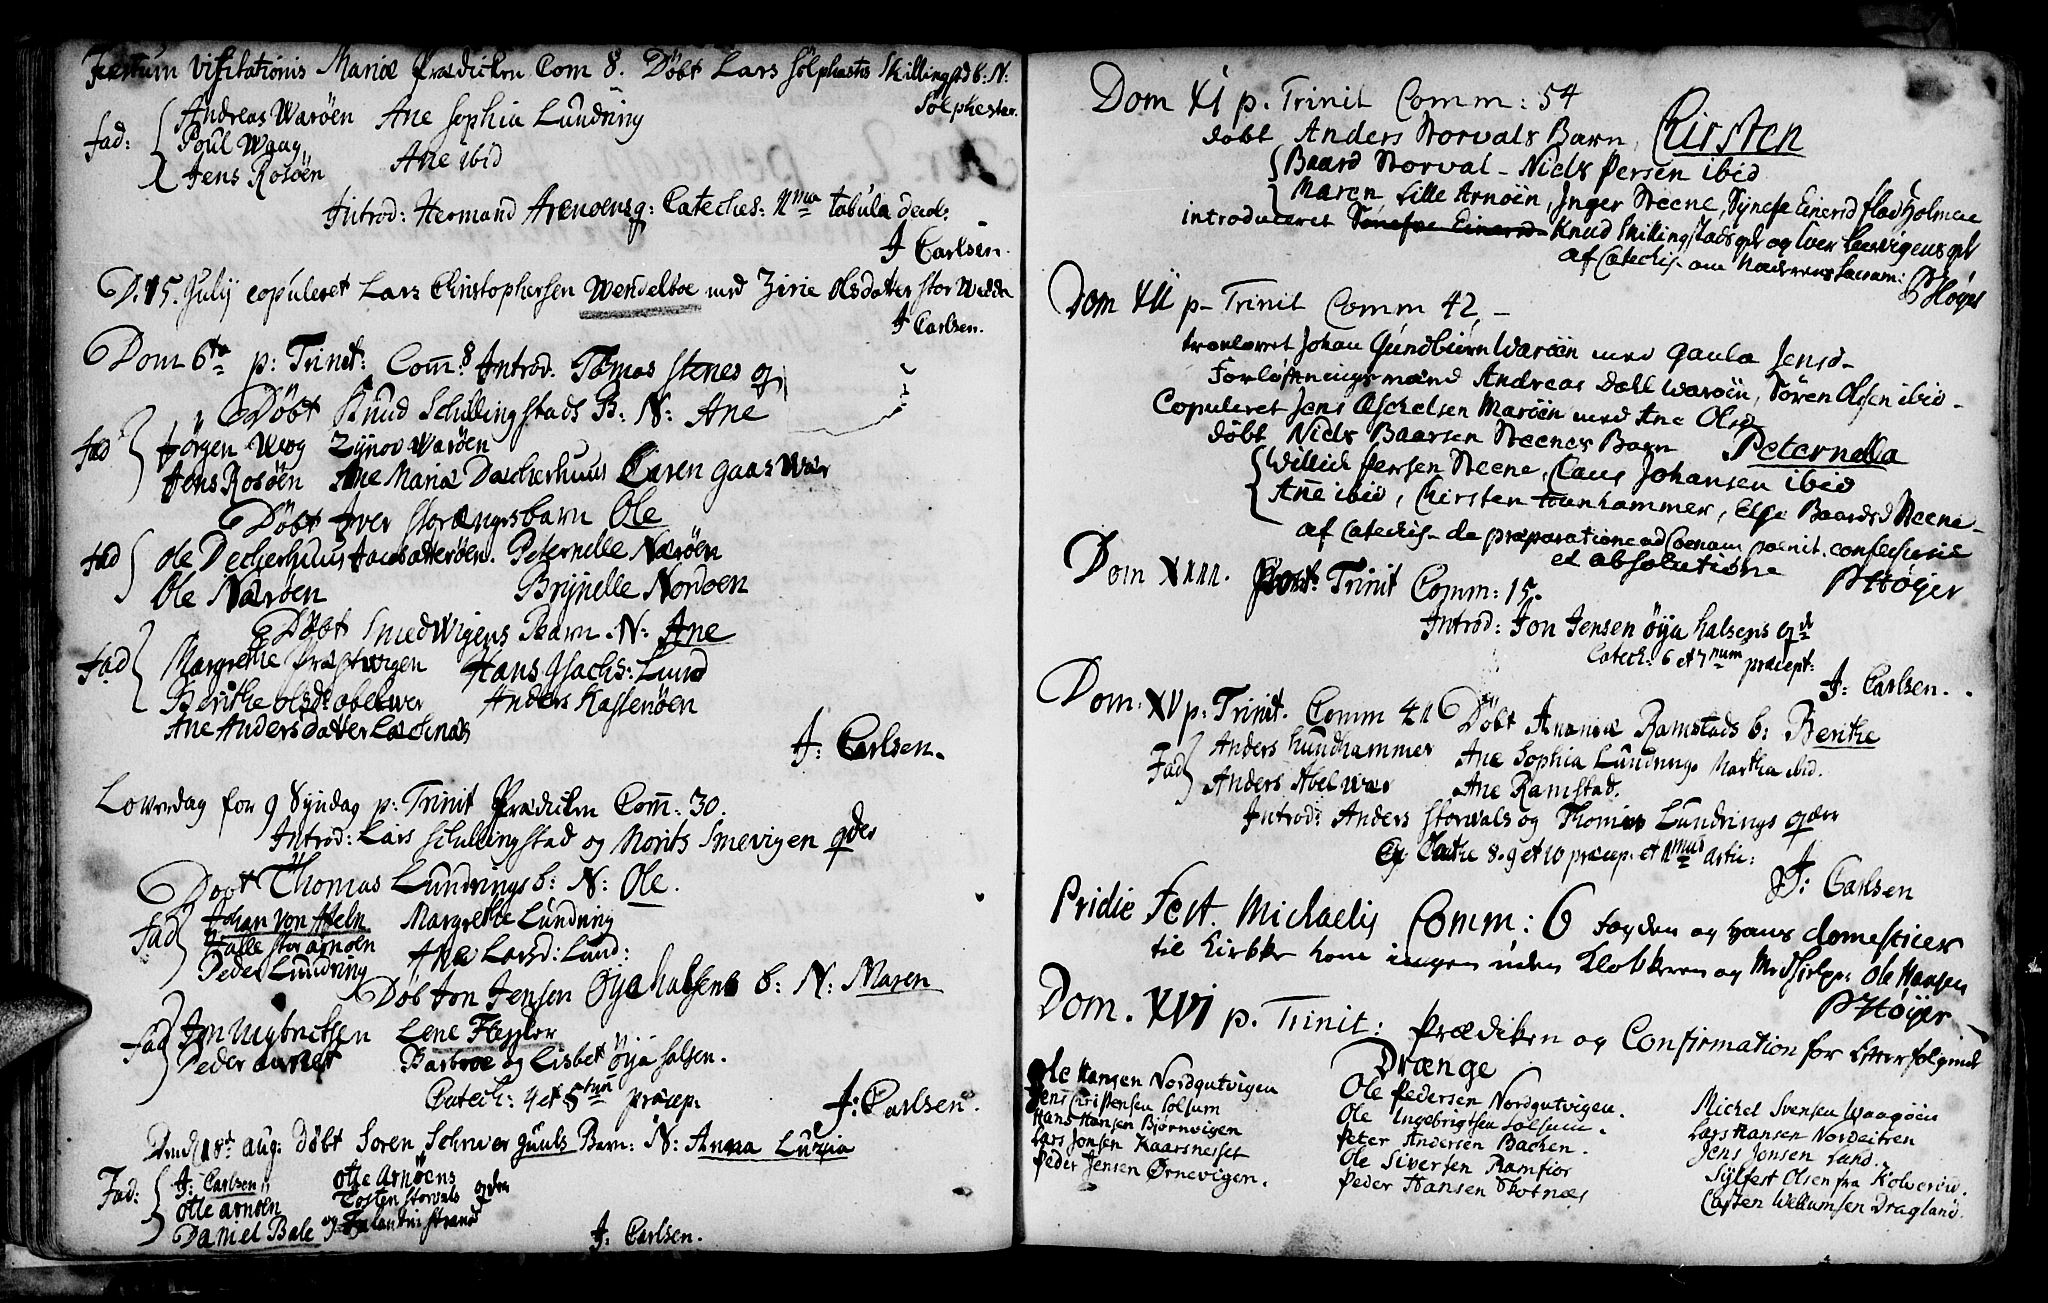 Festum Visitationis Mariæ Prædicken Com 8. Døbt Lars Sølphests Skillingstd b: N:
Sølphester.
Fad: Andreas Warøen Ane Sophia Lundring
Poul Waag Ane ibid
Jens Rosøen
Introd: Hermand Arnoens q: Cateches: 1ma tabula decal:
J Carlsen.
D. 15. July copuleret Lars Christophersen Wendelboe med Zirie Olsdatter Stor Wedda
J Carlsen.
Dom 6ta p: Trinit: Com 8 Introd. Tomas Stenes q
Døbt Knud Schillingstads B: N: Ane
Fad Jørgen Wog Zynov Warøen
Jens Rosøen Ane Maria Decherhuus Caren Gaas Wær
Døbt Iver Storængs barn Ole
Fad Ole Decherhuus Peternelle Nærøen
Ole Nærøen Brynelle Nordøen
Døbt Smedwigens Barn. N: Ane
Fad Margrethe Præstwigen Hans Isachs: Lund
Berithe Olsdr abelwer Anders Kastenøen
Ane Andersdatter Lechnæs
J: Carlsen.
Lowerdag for 9 Syndag p: Trinit Prædicken Com: 30.
Introd: Lars Schillingstad og Morits Smevigen qder
Døbt Thomas Lundrings b: N: Ole.
Fad Johan von Heln Margrethe Lundring
Halle Stor arnøen Ane Larsd: Lund:
Peder Lundring
Døb Jon Jensen Øya halsens b: N: Maren
Fad Jon Lene Flessler
Peder Barbroe og Lisbet Øya halsen.
Catech: 4 et 5tum præcep:
J: Carlsen.
Dend 18de aug: døbt Søren Schriver Juuls Barn: N: Anna Luzia
Fad: J: Carlsen Otte Arnøens
Otte Arnøen Tosten Storvals qder
Daniel Bale og
J: Carlsen.
Dom XI p. Trinit Comm: 54
døbt Anders Storvals Barn, Chirsten
Baard Storval - Niels Persen ibid
Maren Lille Arnøen, Inger Steene, Synefe Einersd flad Holmene
introduceret Knud Skillingstads qd og Iver Laavigens qd
af Catechis. om Nadverens Sacram: PHøyer
Dom XII p- Trinit Comm 42,-
trolovet Johan Gundbiørn Warøen med Gaula Jensd-
Forløftningsmænd Andreas Dall Warøen, Søren Olsen ibid-
Copuleret Jens Aschelsen Marøen med Ane Olsd
døbt Niels Baarsen Steenes Barn Peternella
Willich Persen Steene, Claus Johansen ibid
Ane ibid, Chirsten Hunhammer, Else Baardsd Steene-
af Catechis- de præparatione ad Coenam poenit. confessione
et absolutione PHøyer
Dom XIII. Post. Trinit Comm: 15.
Introd: Jon Jensen Øya halsens qd
Catech: 6 et 7mum præcept:
J: Carlsen.
Dom: XV p: Trinit. Comm 41 Døbt Ananiæ Ramstads b: Berithe
Fad Anders hundhammer Ane Sophia Lundring. Martha ibid.
Anders Abelwær Ane Ramstad.
Introd: Anders Storvals og Thomas Lundrings qder
8. 9 et 10 præcep. et 1mus artic:
J: Carlsen
Pridie Fest. Michaelis Comm: 6 Fogden og hans domesticer
til Kirke kom ingen uden Klokkeren og Ole Hansen
PHøyer
Dom. XVI p. Trinit: Prædiken og Confirmation for efterfølgende
Drænge
Ole Hansen Nordgutvigen Ole Pedersen Nordgutvigen. Michel Svensen Waagøen
Jens Cristensen Solsum Ole Ingebrigtsen Solsum. Lars Hansen Nordeitren
Hans Hansen Bjørnvigen Peter Andersen Backen. Jens Jonsen Lund.
Lars Jonsen Kaarsnesset Ole Siversen Ramfior Sylfest Olsen fra Kolverød.
Peder Jensen Ørnevigen. Peder Hansen Skotnæs Casten Wellumsen Dragland.